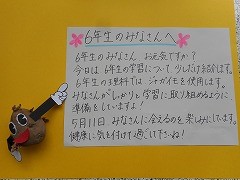 6年生のみなさんへ
6年生のみなさん お元気ですか?
今日は6年生の学習について少しだけ紹介します。
6年生の理科では ジャガイモを使用します。
みなさんがしっかりと学習に取り組めるように、
準備をしていますよ!
5月11日 みなさんに会えるのを楽しみにしています。
健康に気を付けて過ごして下さいね!